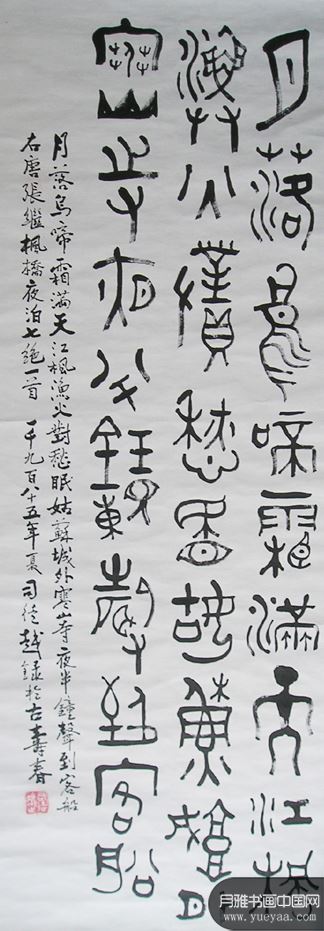 月落烏啼霜滿天江楓
漁火對愁眠姑蘇城外
寒山寺夜半鐘聲到客船
月落烏啼霜滿天江楓漁火對愁眠姑蘇城外寒山寺夜半鐘聲到客船
右唐張繼楓橋夜泊七絕一首 一千九百八十五年夏司徒越録於古壽春
月雅书画中国网
www.yueyaa.com